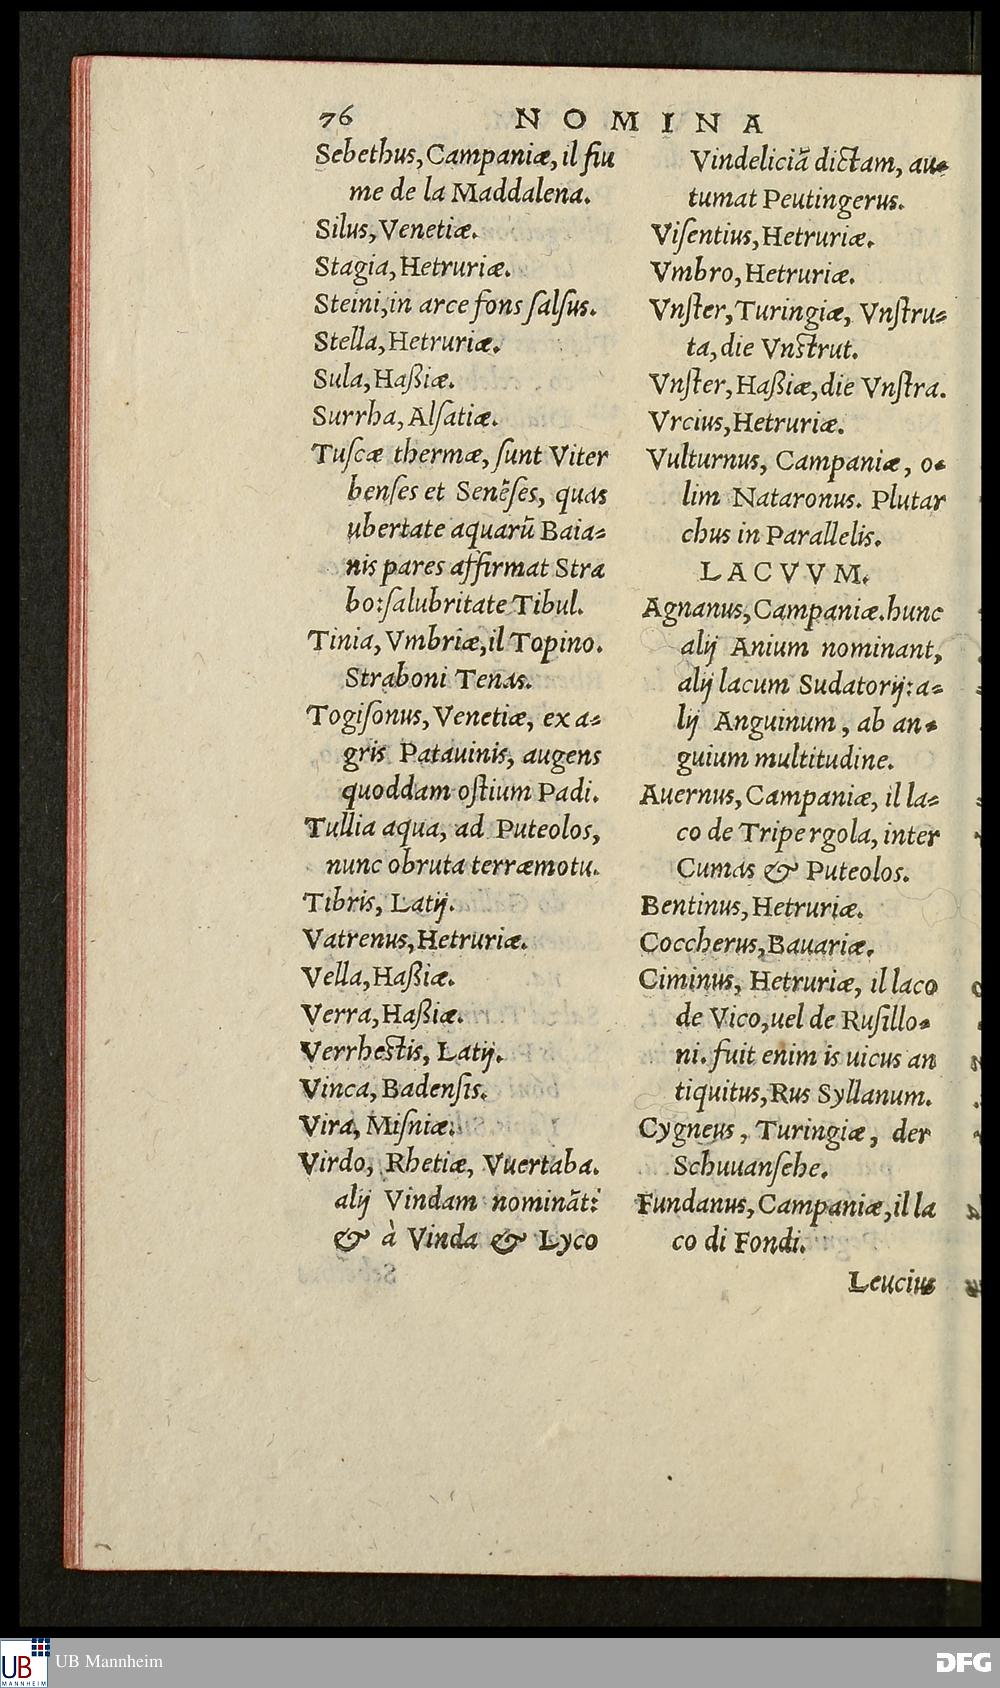 76 NOMINA
Sebethus, Campaniæ, il fiu
me de la Maddalena.
Silus, Venetiæ.
Stagia, Hetruriæ.
Steini, in arce fons ſalſus.
Stella, Hetruriæ.
Sula, Haßiæ.
Surrha, Alſatiæ.
Tuſcæ thermæ, ſunt Viter
benſes et Senẽſes, quas
ubertate aquarũ Baia⸗
nis pares affirmat Stra
bo: ſalubritate Tibul.
Tinia, Vmbriæ, il Topino.
Straboni Tenas.
Togiſonus, Venetiæ, ex a⸗
gris Patauinis, augens
quoddam oſtium Padi.
Tullia aqua, ad Puteolos,
nunc obruta terræmotu.
Tibris, Latij.
Vatrenus, Hetruriæ.
Vella, Haßiæ.
Verra, Haßiæ.
Verrhectis, Latij.
Vinca, Badenſis.
Vira, Miſniæ.
Virdo, Rhetiæ, Vuertaba.
alij Vindam nominãt:
& à Vinda & Lyco
Vindeliciã dictam, au⸗
tumat Peutingerus.
Viſentius, Hetruriæ.
Vmbro, Hetruriæ.
Vnſter, Turingiæ, Vnſtru⸗
ta, die Vnſtrut.
Vnſter, Haßiæ, die Vnſtra.
Vrcius, Hetruriæ.
Vulturnus, Campaniæ, o⸗
lim Nataronus. Plutar
chus in Parallelis.
LACVVM.
Agnanus, Campaniæ. hunc
alij Anium nominant,
alij lacum Sudatorij: a⸗
lij Anguinum, ab an⸗
guium multitudine.
Auernus, Campaniæ, il la⸗
co de Tripergola, inter
Cumas & Puteolos.
Bentinus, Hetruriæ.
Coccherus, Bauariæ.
Ciminus, Hetruriæ, il laco
de Vico, uel de Ruſillo⸗
ni. fuit enim is uicus an
tiquitus, Rus Syllanum.
Cygneus, Turingiæ, der
Schuuanſehe.
Fundanus, Campaniæ, il la
co di Fondi.
Leucius
UB MANNHEIM
UB Mannheim
DFG